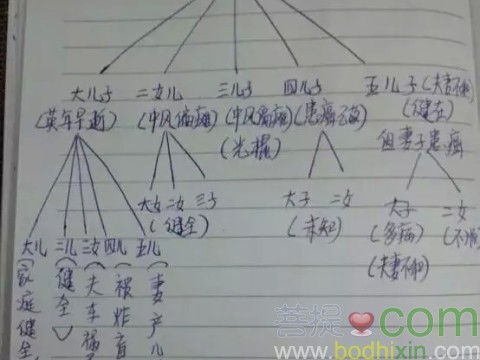 大儿子 二女儿 三儿子 四儿子 五儿子(夫妻不和)
(英年早逝) (中风偏瘫) (中风偏瘫) (患癌已故) (健在)
(光棍) 但妻子患癌
大女 二女 三子 大子 二女 大子 二女
(健全) (未知) (多病)
(夫妻不和)
大儿 二儿 三女 四儿 五儿
(家庭健全
(健全)
(夫车祸
(被炸
(妻产儿
菩提 com
www.bodhixin.com